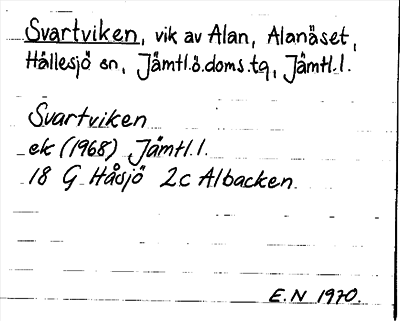 Svartviken, vik av Alan, Alanäset,
Hällesjö sn, Jämtl.ö.doms.tg, Jämtl.l.
Svartviken
ek (1968) Jämtl.l.
18 G Håsjö 2c Albacken
E.N 1970.